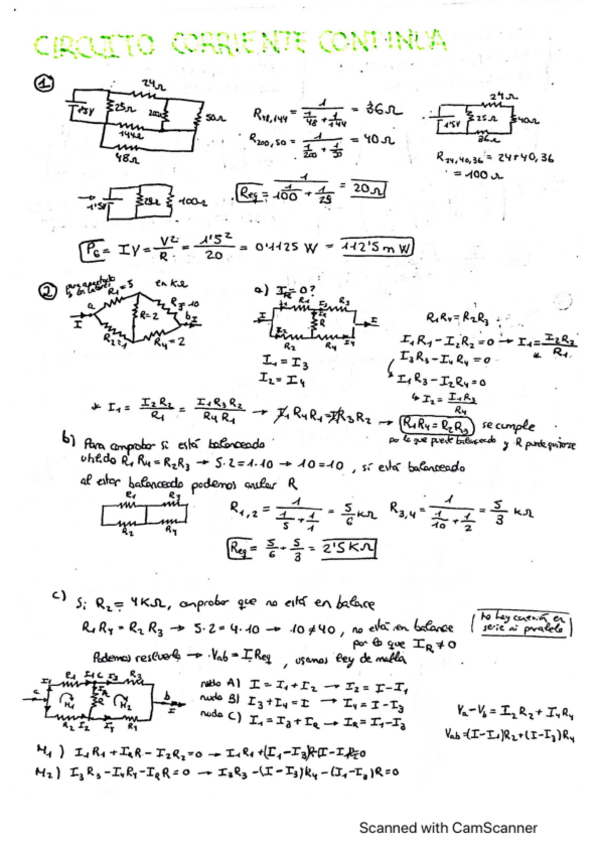 CIRCUITO CORRIENTE CONTINUA
1
24Ω
1'5V 25Ω 200Ω 50Ω
144Ω
48Ω
R48,144 = 1 / (1/48 + 1/144) = 36Ω
R200,50 = 1 / (1/200 + 1/50) = 40Ω
24Ω
1'5V 25Ω 40Ω
36Ω
R24,40,36 = 24+40,36
= 100Ω
1'5V 25Ω 100Ω
Req = 1 / (1/100 + 1/25) = 20Ω
PG = IV = V²/R = 1'5²/20 = 0'1125 W = 112'5 mW
2
en KΩ
R1=5 R3=10
a R=2 b
I I
R2=1 R4=2
a) IR=0?
R1 I3 R3
I R I
I2 I4
R2 R4
I1 = I3
I2 = I4
R1R4 = R2R3
I1R1 - I2R2 = 0 → I1 = I2R2/R1 *
I3R3 - I4R4 = 0
I1R3 - I2R4 = 0
↳ I2 = I1R3/R4
* I1 = I2R2/R1 = I1R3R2/R4R1 → I1R4R1 = I1R3R2 → R1R4 = R2R3 se cumple
por lo que puente balanceado y R puede quitarse
b) Para comprobar si está balanceado
utilizo R1R4 = R2R3 → 5·2 = 1·10 → 10 = 10, sí está balanceado
al estar balanceado podemos anular R
R1 R3
R2 R4
R1,2 = 1 / (1/5 + 1/1) = 5/6 KΩ
R3,4 = 1 / (1/10 + 1/2) = 5/3 KΩ
Req = 5/6 + 5/3 = 2'5 KΩ
c) Si R2 = 4KΩ, comprobar que no está en balance
R1R4 = R2R3 → 5·2 = 4·10 → 10 ≠ 40, no está en balance
por lo que IR ≠ 0
No hay en serie ni paralelo
Podemos resolverlo → Vab = I Req, usamos ley de malla
I1 R1 I3 C R3
a M1 R M2 b
I
R2 I2 I4 R4
nudo A) I = I1 + I2 → I2 = I - I1
nudo B) I3 + I4 = I → I4 = I - I3
nudo C) I1 = I3 + IR → IR = I1 - I3
Va - Vb = I2R2 + I4R4
Vab = (I-I1)R2 + (I-I3)R4
M1) I1R1 + IRR - I2R2 = 0 → I1R1 + (I1-I3)R - (I-I1)R2 = 0
M2) I3R3 - I4R4 - IRR = 0 → I3R3 - (I-I3)R4 - (I1-I3)R = 0
Scanned with CamScanner